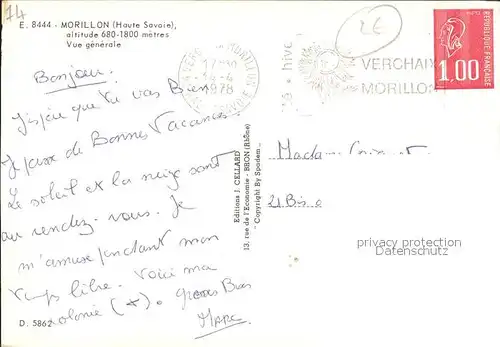 74
E. 8444 - MORILLON (Haute Savoie),
altitude 680-1800 mètres
Vue générale
2€
17H30
14-4
1978
VERCHAIX
MORILLON
1,00
REPUBLIQUE FRANCAISE
Bonjour.
J'espère que tu vas Bien
Je passe de Bonnes Vacances
Le soleil et la neige sont
au rendez-vous. Je
m'amuse pendant mon
temps libre. Voici ma
colonie (*). gros Bises
MARC
D. 5862
Editions J. CELLARD
13, rue de l'Economie - BRON (Rhône)
"Copyright By Spadem"
Madame
21 Bis
privacy protection
Datenschutz